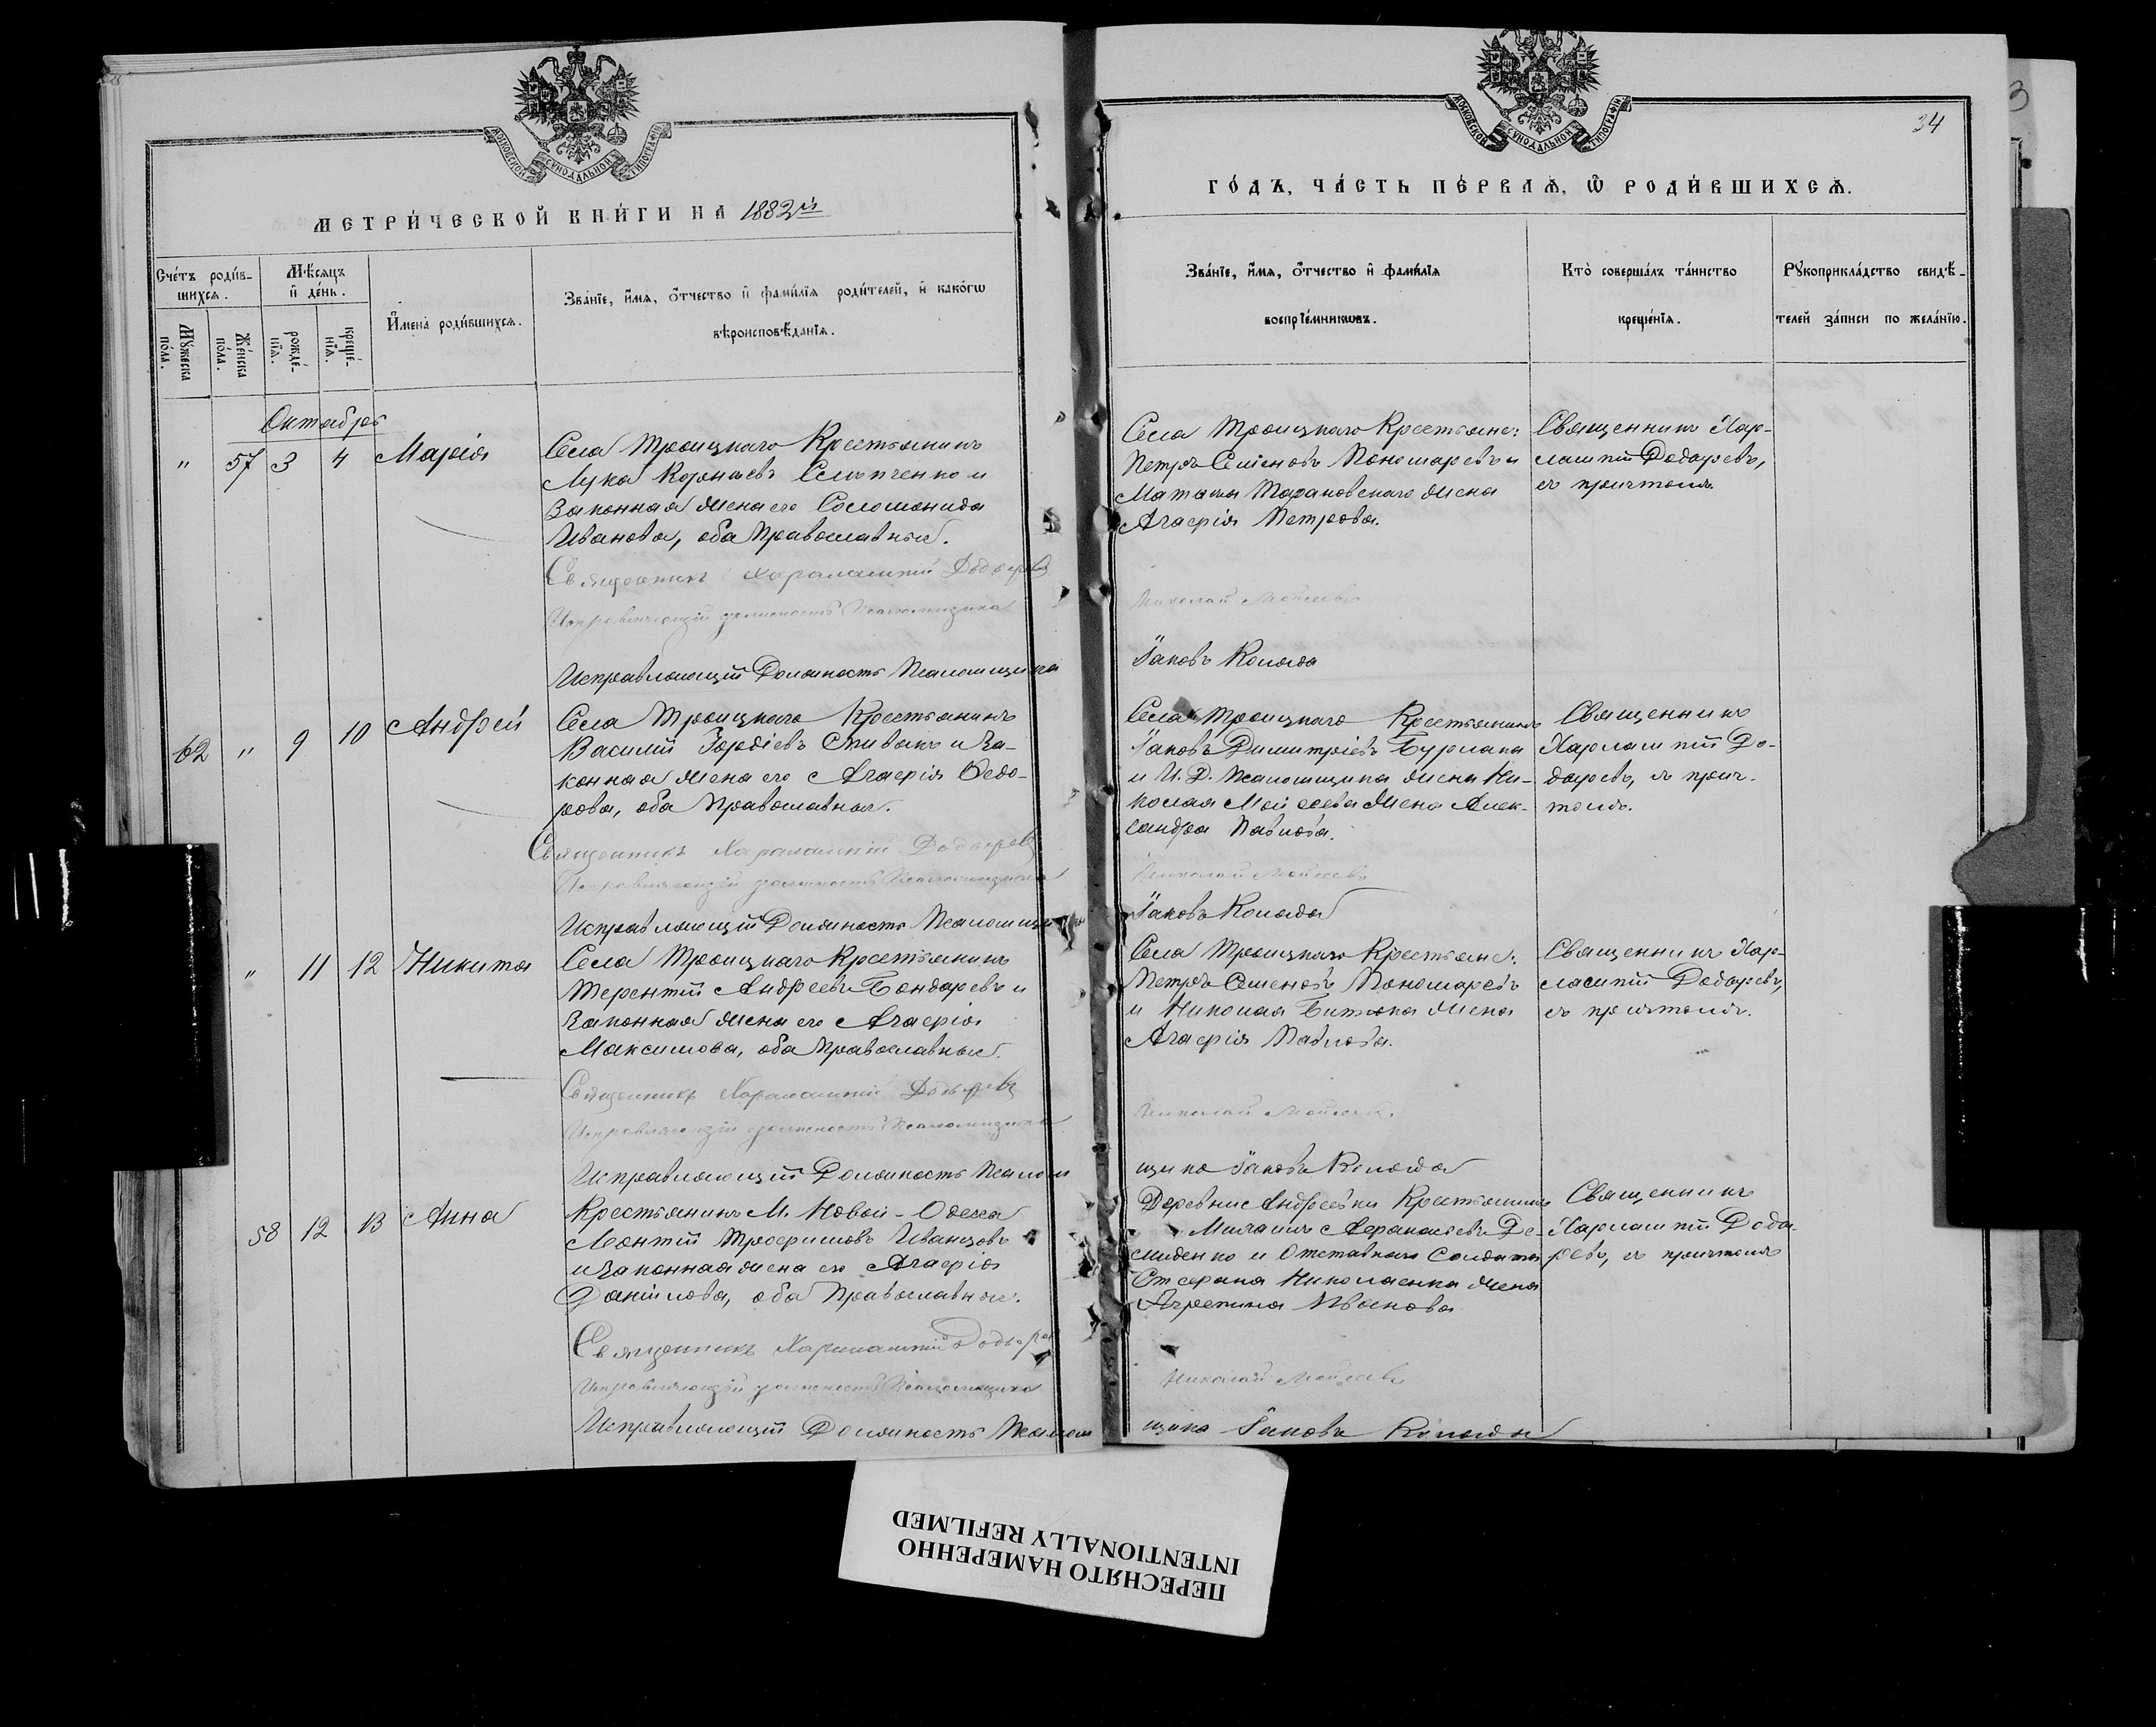 МОСКОВСКОЙ СУНОДАЛЬНОЙ ТИПОГРАФІИ
МЕТРИ́ЧЕСКОЙ КНИ́ГИ НА 1882й
Сче́тъ роди́в-
шихсѧ.
Мѣ́сѧцъ
и҆ де́нь.
Мꙋ́жеска
по́ла.
Же́нска
по́ла.
рожде́-
нїѧ.
креще́-
нїѧ.
И҆мена̀ роди́вшихсѧ.
Зва́нїе, и҆́мѧ, ѻ҆́тчество и҆ фами́лїѧ роди́телей, и҆ како́гѡ
вѣроисповѣ́данїѧ.
Октябрь
" 57 3 4 Марія
Села Троицкаго Крестьянинъ
Лука Корнаевъ и
Законная жена его Соломонида
Иванова, оба Православные.
Священникъ Харалампій Додыревъ
Исправляющій должность Псаломщика
Исправляющій Должность Псаломщика
62 " 9 10 Андрей
Села Троицкаго Крестьянинъ
Василій Гордіевъ Спивакъ и За-
конная жена его Агафія Ѳедо-
рова, оба Православные.
Священникъ Харалампій Додыревъ
Исправляющій должность Псаломщика
Исправляющій Должность Псаломщика
" 11 12 Никита
Села Троицкаго Крестьянинъ
Терентій Андреевъ Бондаревъ и
Законная жена его Агафія
Максимова, оба Православные.
Священникъ Харалампій Додыревъ
Исправляющій должность Псаломщика
Исправляющій Должность Псалом
58 12 13 Анна
Крестьянинъ М. Новой-Одесса
Леонтій Трофимовъ Иванцовъ
и Законная жена его Агафія
Даніилова, оба Православные.
Священникъ Харалампій Додырев
Исправляющій должность Псаломщика
Исправляющій Должность Псалом
МОСКОВСКОЙ СУНОДАЛЬНОЙ ТИПОГРАФІИ
34
3
ГО́ДЪ, ЧА́СТЬ ПЕ́РВАѦ, Ѽ РОДИ́ВШИХСѦ.
Зва́нїе, и҆́мѧ, ѻ҆́тчество и҆ фами́лїѧ
воспрїе́мникѡвъ.
Кто̀ соверша́лъ та́инство
креще́нїѧ.
Рꙋкоприкла́дство свидѣ́-
телей за́писи по жела́нїю.
Села Троицкаго Крестьяне:
Петръ Семеновъ Пономаревъ и
Тарановскаго жена
Агафія Петрова.
Священникъ Хар-
лампій Додыревъ,
съ причтомъ.
Николай Мойсеевъ
Іаковъ Коляда
Села Троицкаго Крестьянинъ
Іаковъ Димитріевъ Бурлака
и И. Д. Псаломщика жена Ни-
колая Мойсеева жена Алек-
сандра Павлова.
Священникъ
Харлампій До-
дыревъ, съ прич-
томъ.
Николай Мойсеевъ
Іаковъ Коляда
Села Троицкаго Крестьяне:
Петръ Семеновъ Пономаревъ
и Николая Битюка жена
Агафія Павлова.
Священникъ Хар-
лампій Додыревъ,
съ причтомъ.
Николай Мойсеев
щика Іаковъ Коляда
Деревни Андреевки Крестьянинъ
Михаилъ Афанасьевъ Де-
миденко и Отставнаго Солдата
Стефана Николаенка жена
Агрепина Иванова
Священникъ
Харлампій Доды-
ревъ, съ причтомъ
Николай Мойсеевъ
щика Іаковъ Коляда
ПЕРЕСНЯТО НАМЕРЕННО
INTENTIONALLY REFILMED